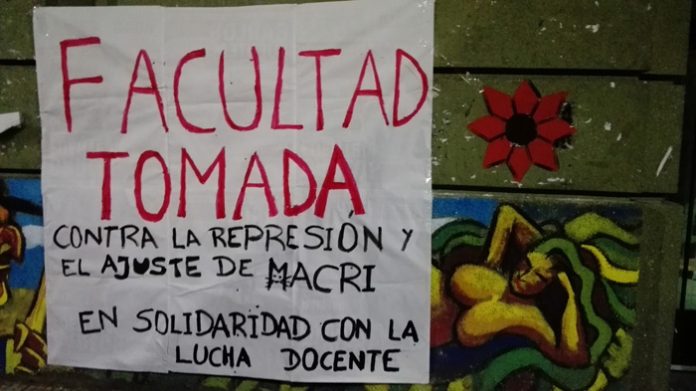 FACULTAD
TOMADA
CONTRA LA REPRESIÓN Y
EL AJUSTE DE MACRI
EN SOLIDARIDAD CON LA
LUCHA DOCENTE